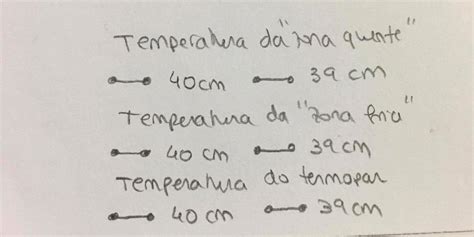 Temperatura da "zona quente"
40cm 39 cm
Temperatura da "zona fria"
40 cm 39cm
Temperatura do termopar
40 cm 39cm